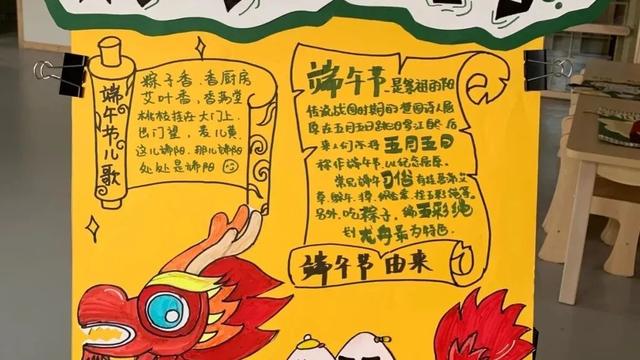 端午节儿歌
粽子香,香厨房
艾叶香,香满堂
桃枝挂在大门上
出门望,麦儿黄
这儿端阳,那儿端阳
处处是端阳
端午节是祭祖的阳
传说战国时期的楚国诗人屈
原在五月五日跳汨罗江自尽,后
来人们亦将五月五日
称作端午节,以纪念屈原。
常见端午习俗有挂菖蒲艾
草、佩香囊、拴五彩绳等。
另外,吃粽子,编五彩绳
划龙舟最为特色
端午节由来